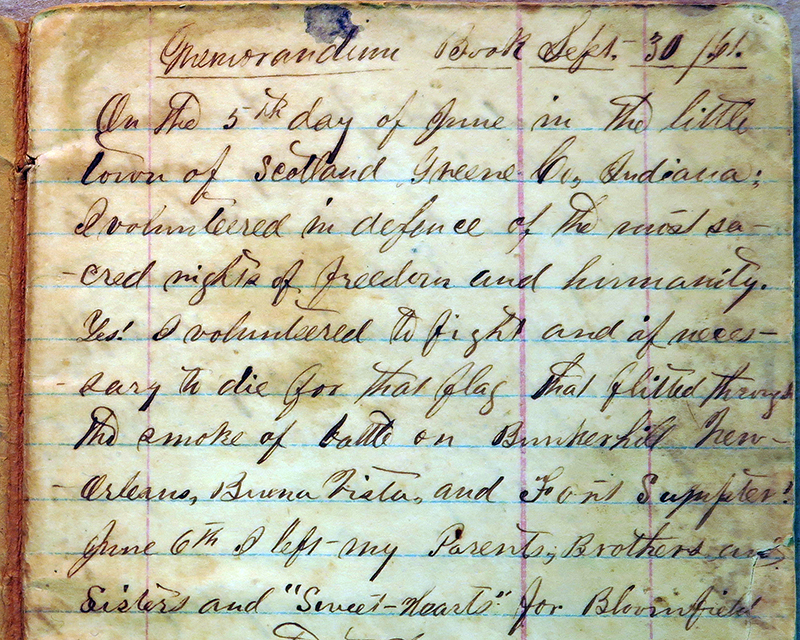 Memorandum Book Sept. 30 /61.
On the 5th day of June in the little
town of Scotland Greene Co., Indiana;
I volunteered in defence of the most sa-
-cred rights of freedom and humanity.
Yes! I volunteered to fight and if neces-
-sary to die for that flag that flitted through
the smoke of battle on Bunkerhill New-
-Orleans, Buena Vista, and Fort Sumpter!
June 6th I left my Parents, Brothers and
Sisters and "Sweet-Hearts" for Bloomfield